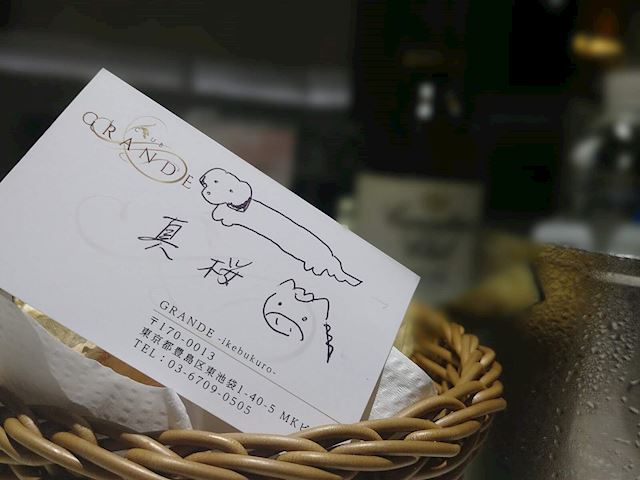 CLUB
GRANDE
真桜
GRANDE -ikebukuro-
〒170-0013
東京都豊島区東池袋1-40-5 MKビ
TEL：03-6709-0505